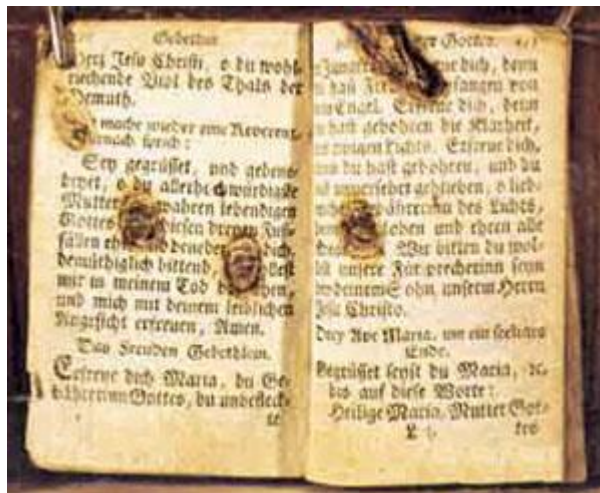 Gebether
Herz Jesu Christi, o du wohl-
riechende Viol des Thals der
Demuth.
mache wieder eine Reverentz,
sprich:
Sey gegrüsset, und gebene-
deyet, o du allerhochwürdigste
Mutter wahren lebendigen
Gottes diesen dreyen Fuß-
fällen dich,
demüthiglich bittend,
mir in meinem Tod
und mich mit deinem lieblichen
Angesicht erfreuen, Amen.
Das Freuden Gebethlein.
Erfreue dich Maria, du Ge-
bährerinn Gottes, du unbefleck-
te
der Gottes.
Jungfrau dich, denn
du hast von
Engel. Erfreue dich, denn
du hast gebohren die Klarheit,
ewigen Lichts. Erfreue dich,
du hast gebohren, und du
unversehrt geblieben, o lieb-
des Lichts,
loben und ehren alle
Wir bitten du wol-
lest unsere Fürsprecherinn seyn
bey deinem Sohn, unserm Herrn
Jesu Christo.
Drey Ave Maria, um ein seeliges
Ende.
Gegrüsset seyst du Maria, ꝛc.
bis auf diese Worte:
Heilige Maria, Mutter Got-
L tes